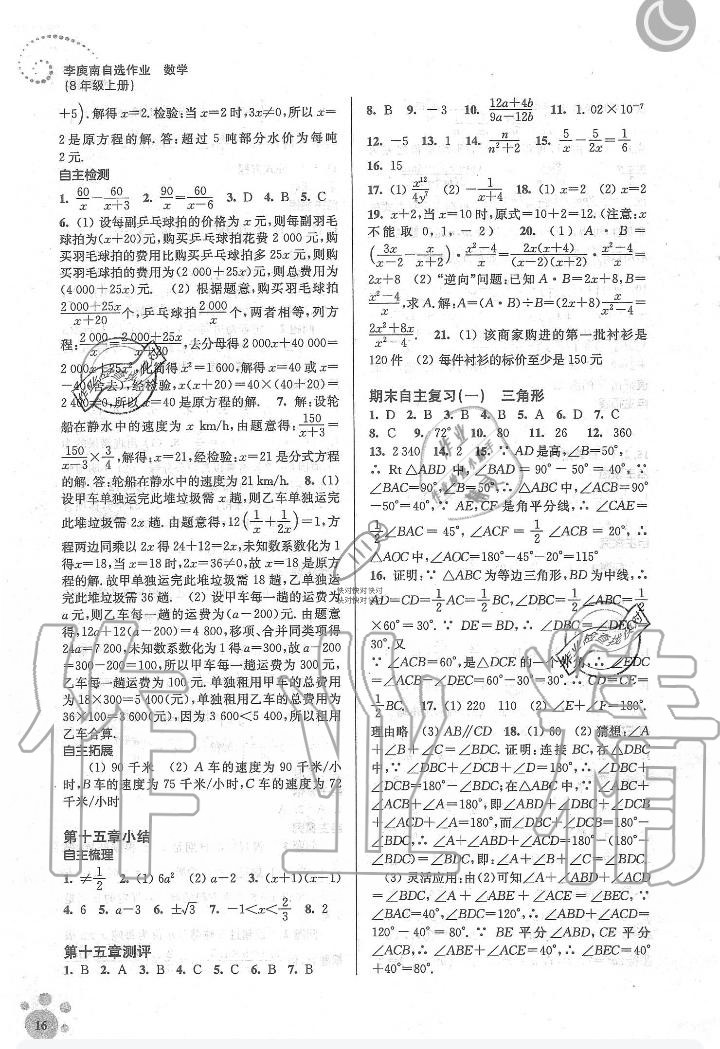 李庾南自选作业 数学
(8年级上册)
+5). 解得 x=2. 检验:当 x=2 时,3x≠0,所以 x=
2 是原方程的解. 答:超过 5 吨部分水价为每吨
2 元.
自主检测
1. 60/x - 60/(x+3) 2. 90/x = 60/(x-6) 3. D 4. B 5. C
6. (1) 设每副乒乓球拍的价格为 x 元,则每副羽毛
球拍为(x+20)元,购买乒乓球拍花费 2 000 元,购
买羽毛球拍的费用比购买乒乓球拍多 25x 元,则购
买羽毛球拍的费用为(2 000+25x)元,则总费用为
(4 000+25x)元. (2) 根据题意,购买羽毛球拍
(2 000+25x)/(x+20) 个,乒乓球拍 2 000/x 个,两者相等,列方
程: 2 000/x = (2 000+25x)/(x+20),去分母得 2 000x+40 000=
2 000x+25x²,化简得 x²=1 600,解得 x=40 或 x=
-40(舍去),经检验,x(x+20)=40×(40+20)=
2 400≠0,所以 x=40 是原方程的解. 7. 解:设轮
船在静水中的速度为 x km/h,由题意得: 150/(x+3) =
150/(x-3) × 3/4,解得:x=21,经检验:x=21 是分式方程
的解. 答:轮船在静水中的速度为 21 km/h. 8. (1)
设甲车单独运完此堆垃圾需 x 趟,则乙车单独运完
此堆垃圾需 2x 趟. 由题意得,12(1/x + 1/2x)=1,方
程两边同乘以 2x 得 24+12=2x,未知数系数化为 1
得 x=18,当 x=18 时,2x=36≠0,故 x=18 是原方
程的解. 故甲单独运完此堆垃圾需 18 趟,乙单独运
完此堆垃圾需 36 趟. (2) 设甲车每一趟的运费为
a 元,则乙车每一趟的运费为(a-200)元. 由题意
得,12a+12(a-200)=4 800,移项、合并同类项得
24a=7 200,未知数系数化为 1 得 a=300,故 a-200
=300-200=100,所以甲车每一趟的运费为 300 元,
乙车每一趟运费为 100 元. 单独租用甲车的总费用
为 18×300=5 400(元),单独租用乙车的总费用为
36×100=3 600(元),因为 3 600<5 400,所以租用
乙车合算.
自主拓展
(1) 90 千米 (2) A 车的速度为 90 千米/小
时,B 车的速度为 75 千米/小时,C 车的速度为 72
千米/小时
第十五章小结
自主梳理
1. ≠1/2 2. (1) 6a² (2) a-2 3. (x+1)(x-1)
4. 6 5. a-3 6. ±√3 7. -1<x<2/3 8. 2
第十五章测评
1. B 2. A 3. B 4. C 5. C 6. B 7. B
8. B 9. -3 10. (12a+4b)/(9a-12b) 11. 1.02×10⁻⁷
12. -5 13. 1 14. n/(n²+2) 15. 5/x - 5/2x = 1/6
16. 15
17. (1) x¹²/4y⁷ (2) -1/(x+4) 18. (1) x=2 (2) x=2
19. x+2,当 x=10 时,原式=10+2=12. (注意:x
不能取 0,1,-2) 20. (1) A·B=
(3x/(x-2) - x/(x+2))·(x²-4)/x = 2x(x+4)/((x-2)(x+2))·(x²-4)/x =
2x+8 (2) “逆向”问题:已知 A·B=2x+8,B=
(x²-4)/x,求 A. 解:A=(A·B)÷B=(2x+8)·x/(x²-4)=
(2x²+8x)/(x²-4). 21. (1) 该商家购进的第一批衬衫是
120 件 (2) 每件衬衫的标价至少是 150 元
期末自主复习(一) 三角形
1. D 2. B 3. B 4. B 5. A 6. D 7. C
8. C 9. 72° 10. 80 11. 26 12. 360
13. 2 340 14. 2 15. ∵ AD 是高,∠B=50°,
∴ Rt△ABD 中,∠BAD=90°-50°=40°. ∵
∠BAC=90°,∠B=50°,∴ △ABC 中,∠ACB=90°
-50°=40°. ∵ AE,CF 是角平分线,∴ ∠CAE=
1/2∠BAC=45°,∠ACF=1/2∠ACB=20°,∴
△AOC 中,∠AOC=180°-45°-20°=115°
16. 证明:∵ △ABC 为等边三角形,BD 为中线,∴
AD=CD=1/2AC=1/2BC,∠DBC=1/2∠ABC=1/2
×60°=30°. ∵ DE=BD,∴ ∠DBC=∠DEC=
30°. 又
∵ ∠ACB=60°,是△DCE 的一个外角,∴ ∠EDC
=∠ACB-∠DEC=60°-30°=30°. ∴ CD=CE=
1/2BC. 17. (1) 220 110 (2) ∠E+∠F=180°.
理由略 (3) AB∥CD 18. (1) 60 (2) 猜想:∠A
+∠B+∠C=∠BDC. 证明:连接 BC,在△DBC
中,∵ ∠DBC+∠DCB+∠D=180°,∴ ∠DBC+
∠DCB=180°-∠BDC;在△ABC 中,∵ ∠ABC+
∠ACB+∠A=180°,即∠ABD+∠DBC+∠DCB
+∠ACD+∠A=180°,而∠DBC+∠DCB=180°-
∠BDC,∴ ∠A+∠ABD+∠ACD=180°-(180°-
∠BDC)=∠BDC,即:∠A+∠B+∠C=∠BDC.
(3) 灵活应用:由(2)可知∠A+∠ABD+∠ACD
=∠BDC,∠A+∠ABE+∠ACE=∠BEC. ∵
∠BAC=40°,∠BDC=120°,∴ ∠ABD+∠ACD=
120°-40°=80°. ∵ BE 平分∠ABD,CE 平分
∠ACB,∴ ∠ABE+∠ACE=40°,∴ ∠BEC=40°
+40°=80°.
16
作业精